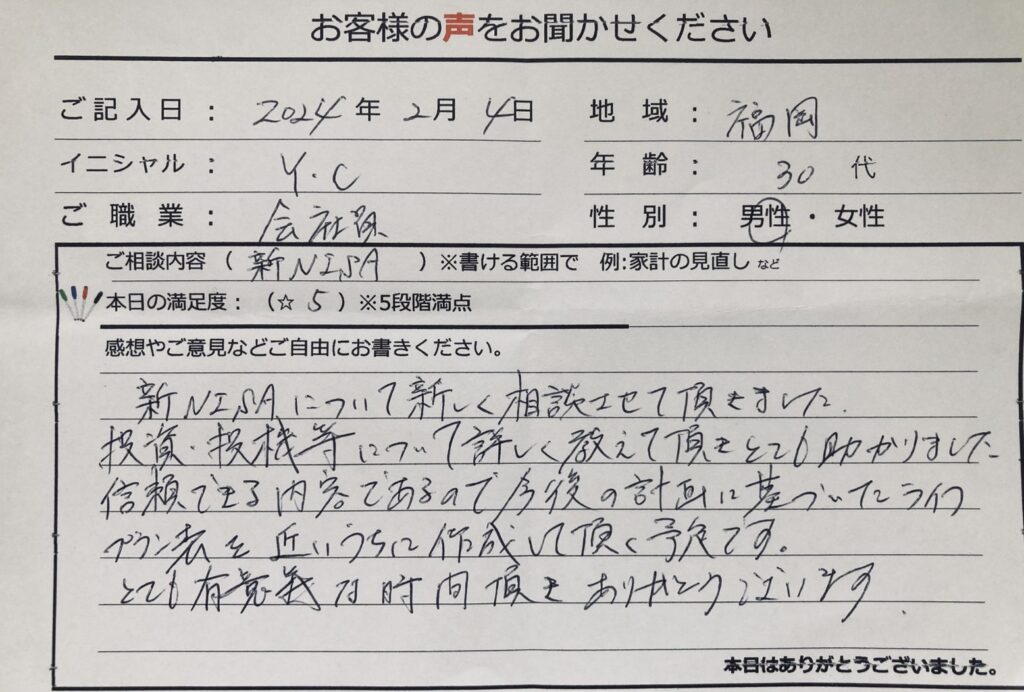 お客様の声をお聞かせください
ご記入日： 2024年 2月 4日
地域： 福岡
イニシャル： Y.C
年齢： 30代
ご職業： 会社員
性別： 男性・女性
ご相談内容（ 新NISA ）※書ける範囲で 例:家計の見直し など
本日の満足度：（☆ 5 ）※5段階満点
感想やご意見などご自由にお書きください。
新NISAについて新しく相談させて頂きました.
投資・投機等について詳しく教えて頂きとても助かりました
信頼できる内容であるので今後の計画に基づいたライフ
プラン表を近いうちに作成して頂く予定です。
とても有意義な時間頂きありがとうございます.
本日はありがとうございました。